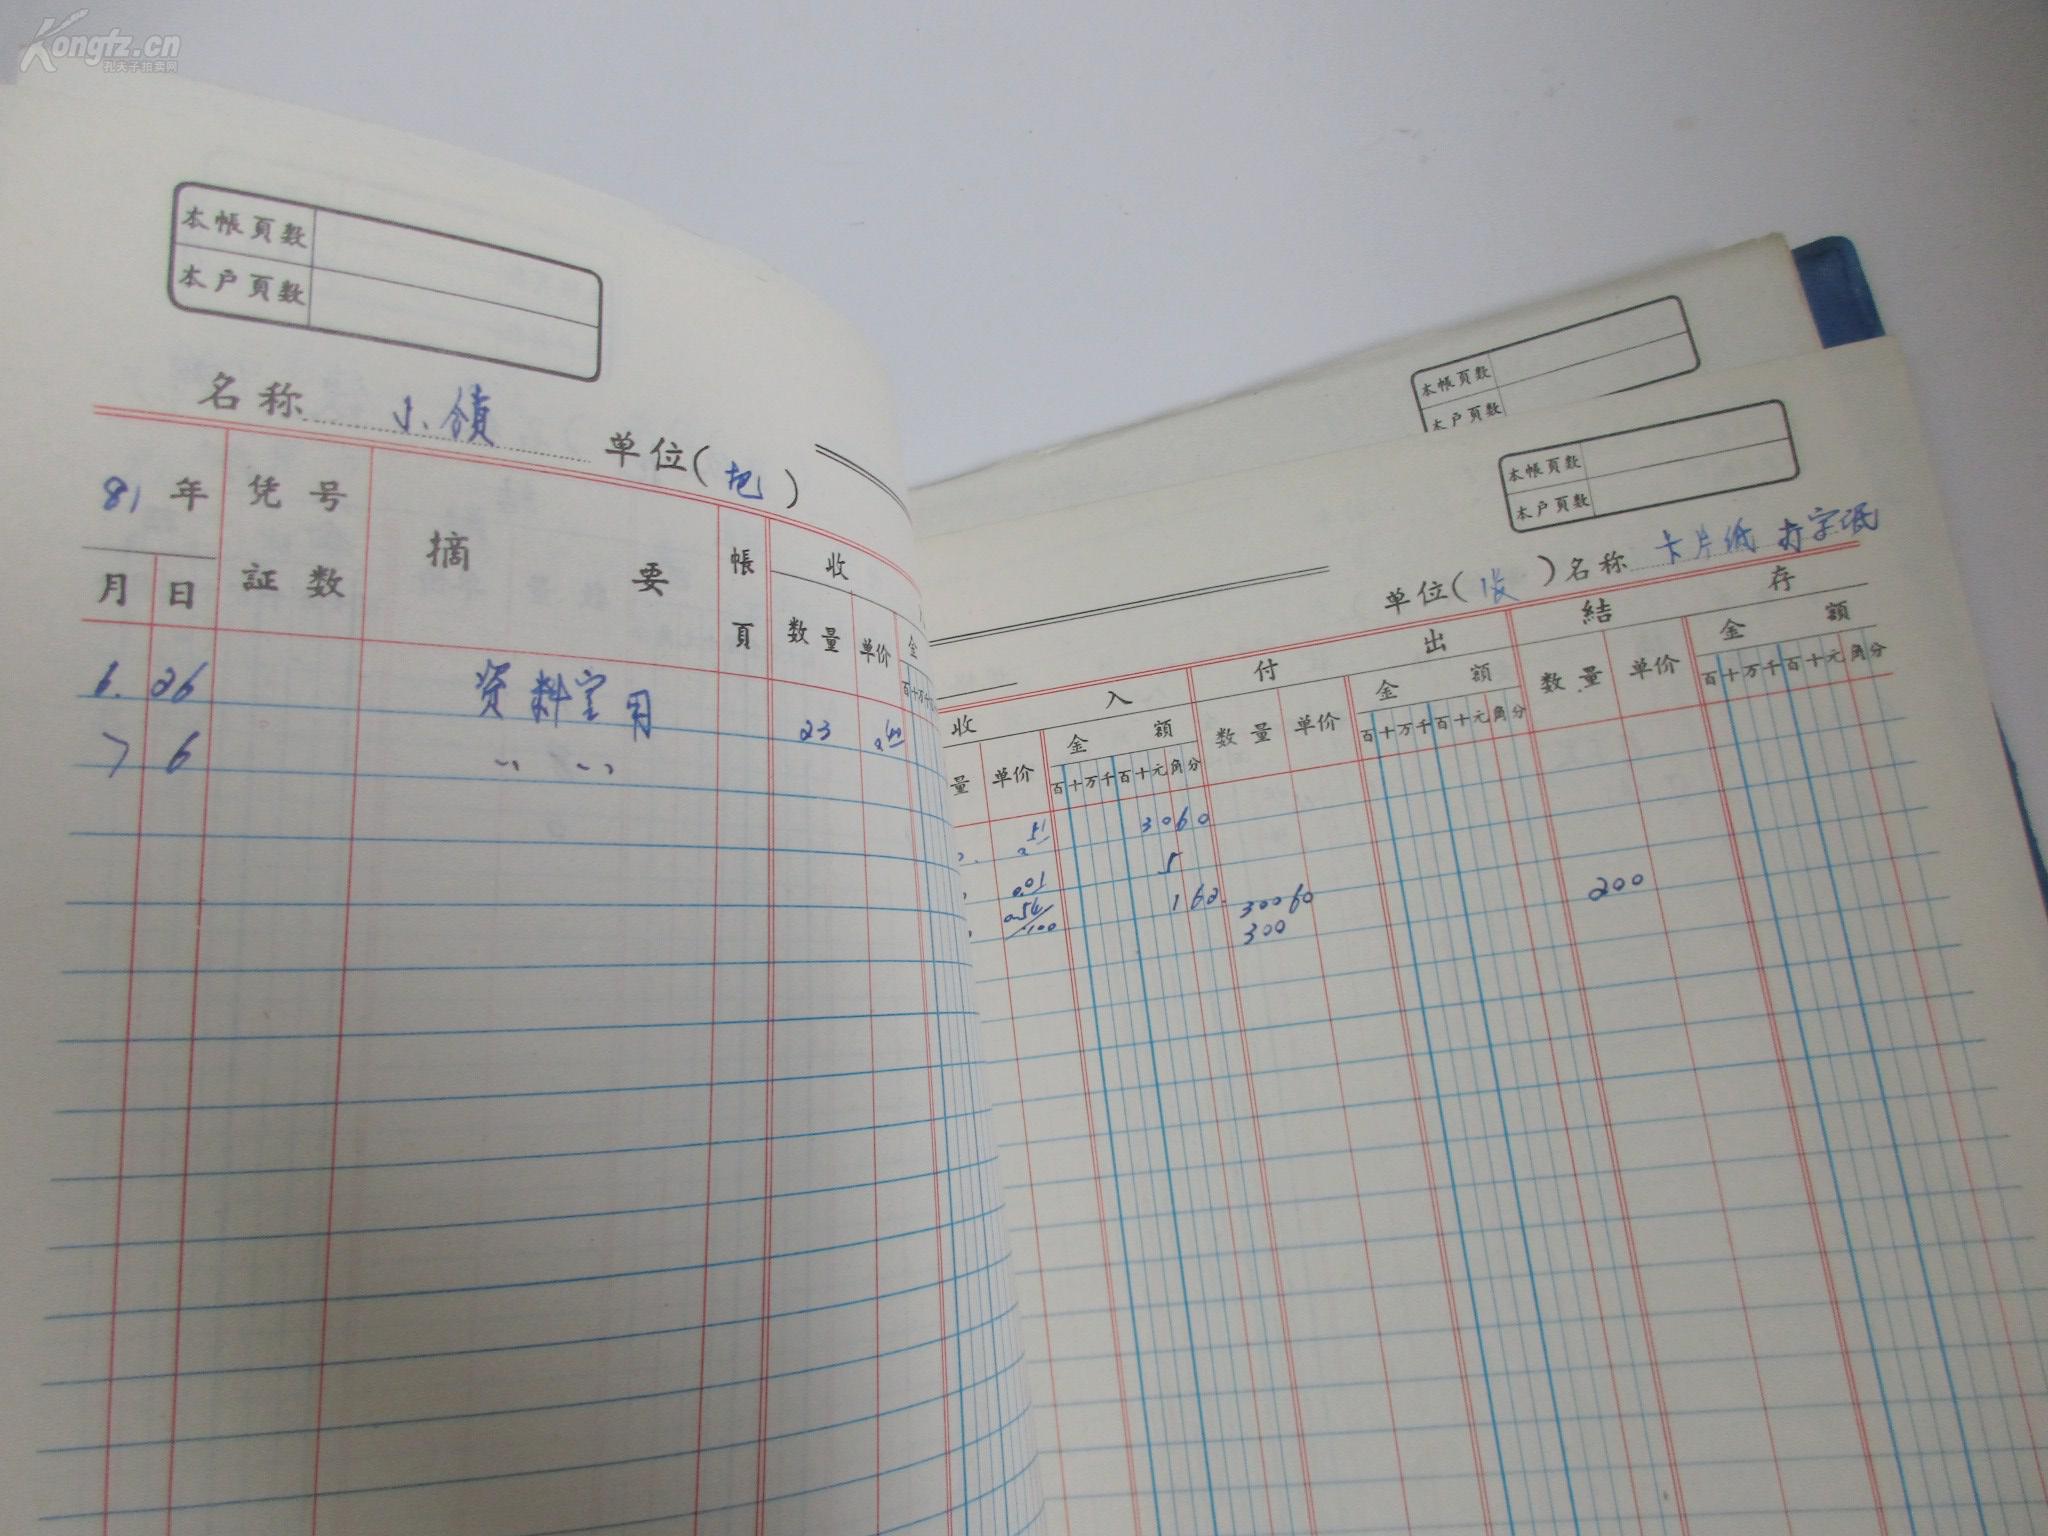 Kongfz.cn
孔夫子拍卖网
本帳頁数
本户頁数
名称 小 单位(把)
81年 凭号 摘要 帳 收
月 日 証数 頁 数量 单价 金
百十万千
6. 26 资料室用 23
7 6 〃 〃
本帳頁数
本户頁数
本帳頁数
本户頁数
单位(张) 名称 卡片纸 打字纸
收入 付出 結存
量 单价 金额 数量 单价 金额 数量 单价 金额
百十万千百十元角分 百十万千百十元角分 百十万千百十元角分
3060
0.01 5
0.54/100 162. 30060 200
300